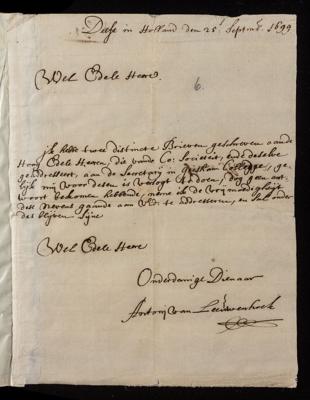 Delft in Holland den 25e Septembr 1699
6.
Wel Edele Heere.
ik hebbe twee distincte Brieven geschreven aan de
Hoog Edele Heeren, die vande Co: Societeit, ende deselve
geadresseert, aan de Secretary in Gresham Colledge, ge-
lijk mij voor desen is versogt te doen, dog geen ant-
woort bekomen hebbende, neme ik de vrijmoedigheijt
dese nevens gaande aan UE. te addresseren, en sal onder
des blijven sijne
Wel Edele Heere
Onderdanige Dienaar
Antonj van Leeuwenhoek